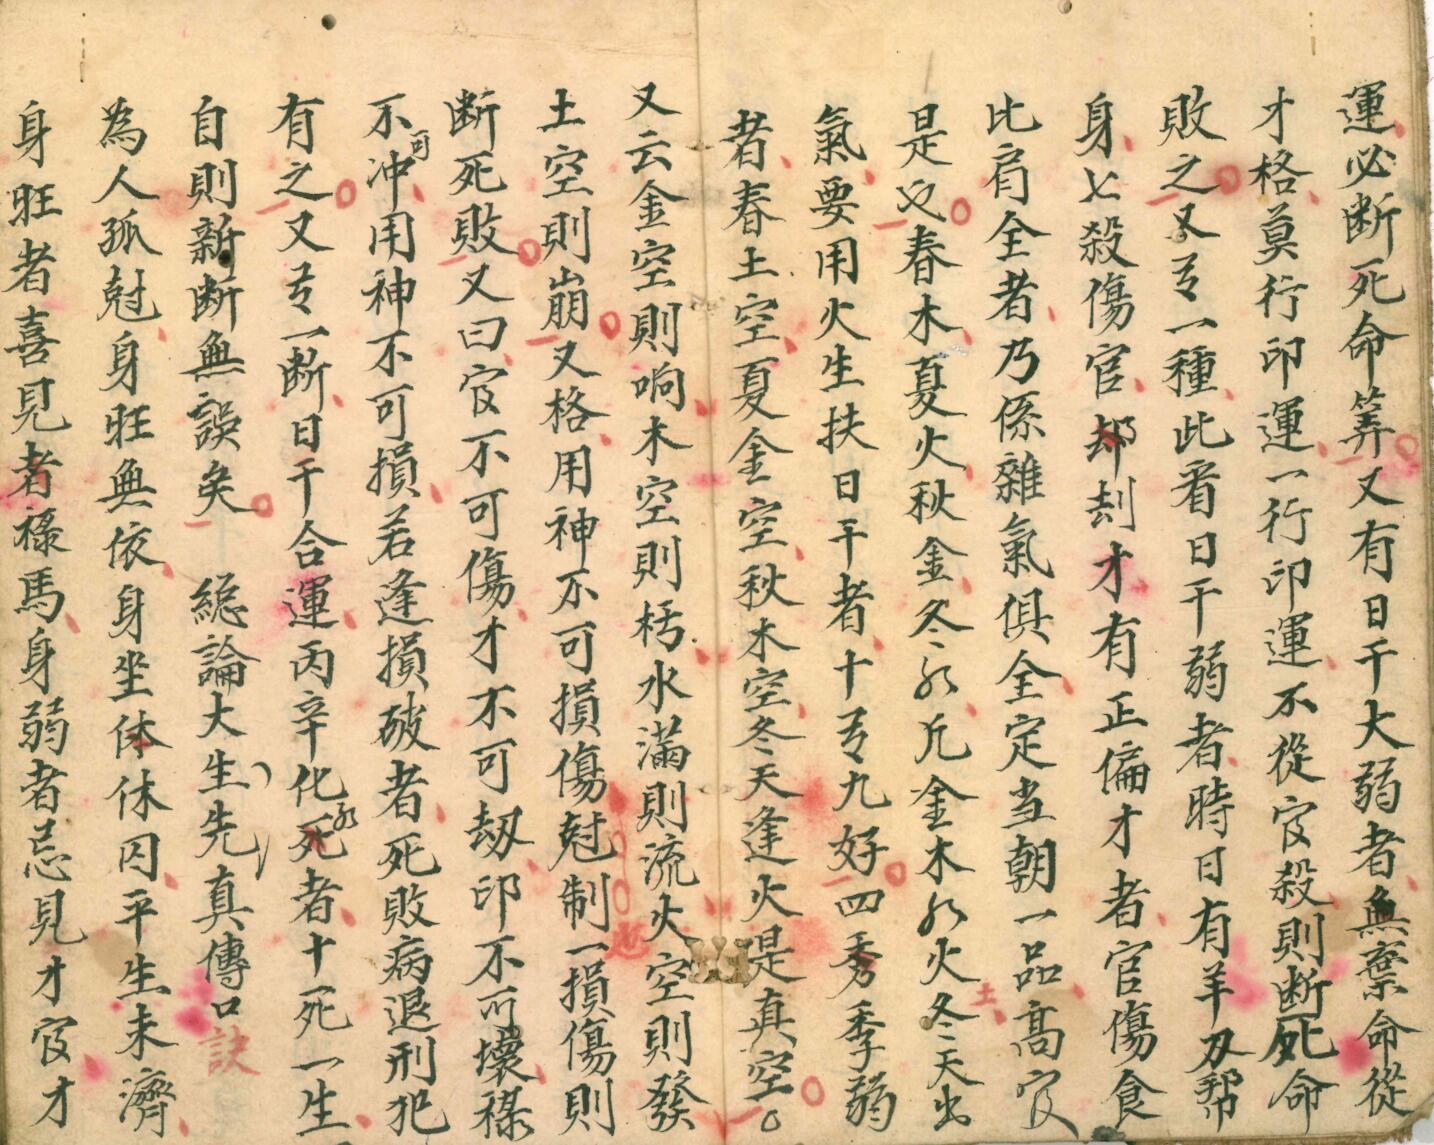 運必断死命筭又有日干大弱者無棄命從
才格莫行印運一行印運不從官殺則断死命
敗之又彡一種此看日干弱者時日有羊刃帮
身七殺傷官却刦才有正偏才者官傷食
比肩全者乃係雜氣俱全定当朝一品高官
是也春木夏火秋金冬水凡金木水火土冬天出
氣要用火生扶日干者十彡九好四秀季弱
者春土空夏金空秋木空冬天逢火是真空
又云金空則响木空則朽水滿則流火空則發
土空則崩又格用神不可損傷尅制一損傷則
断死敗又曰官不可傷才不可刼印不可壞祿
不可冲用神不可損若逢損破者死敗病退刑犯
有之又彡一断日干合運丙辛化水死者十死一生
自則新断無誤矣 総論大生先真傳口訣
為人孤尅身旺無依身坐休囚平生未濟
身旺者喜見者祿馬身弱者忌見才官才